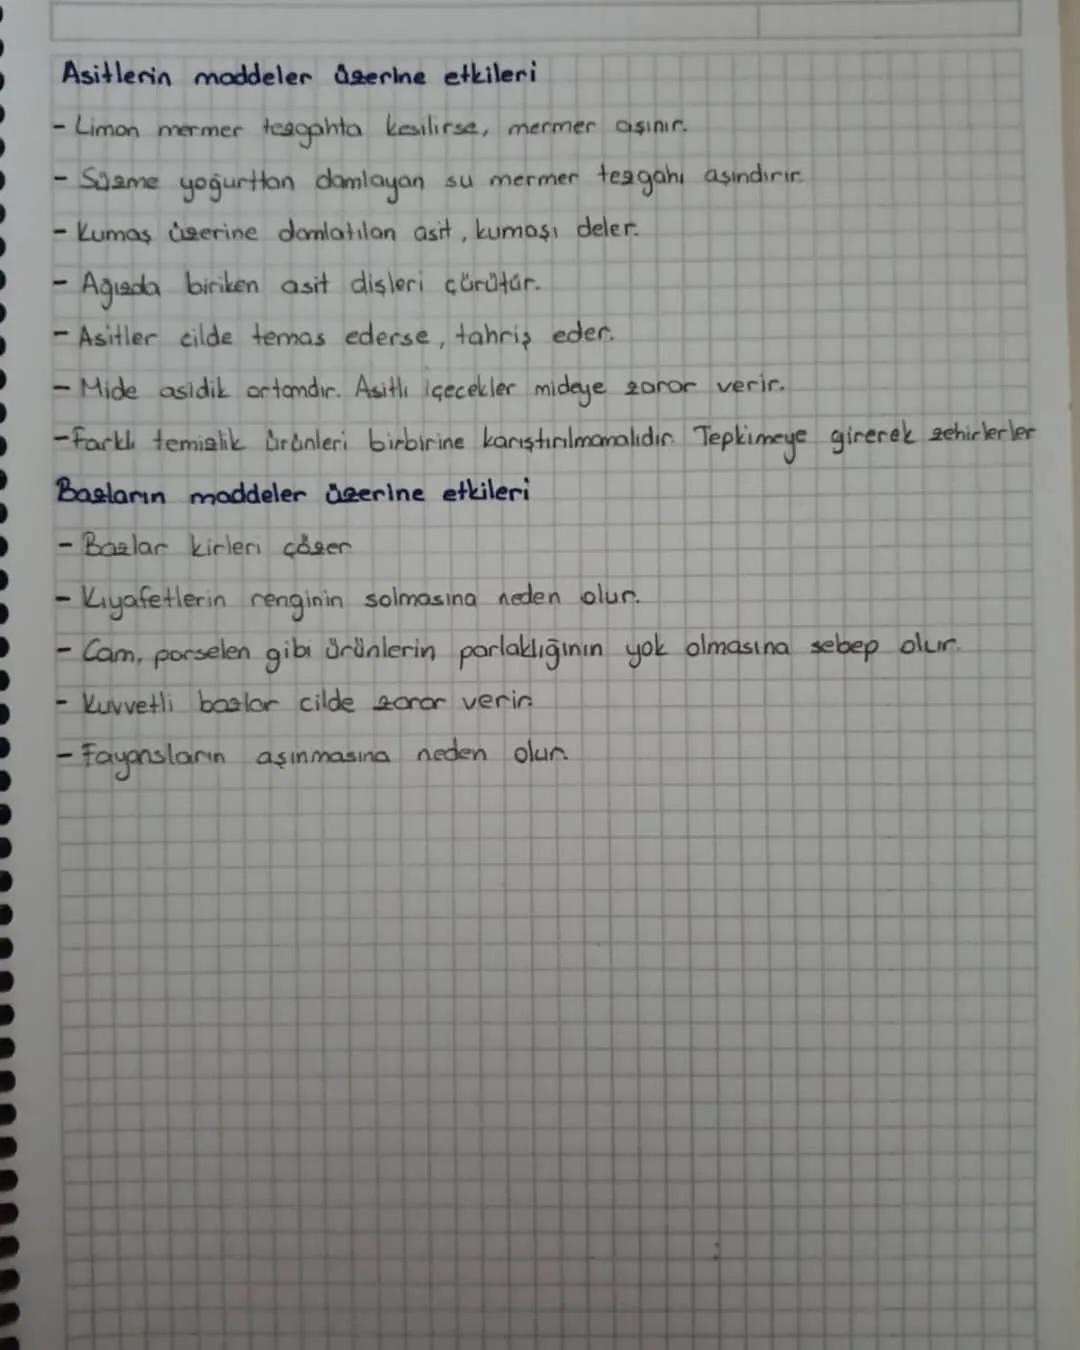 Asitlerin maddeler üzerine etkileri
- Limon mermer tezgahta kesilirse, mermer aşınır.
- Süzme yoğurttan damlayan su mermer tezgahı aşındırır.
- Kumaş üzerine damlatılan asit, kumaşı deler.
- Ağızda biriken asit dişleri çürütür.
- Asitler cilde temas ederse, tahriş eder.
- Mide asidik ortamdır. Asitli içecekler mideye zarar verir.
- Farklı temizlik ürünleri birbirine karıştırılmamalıdır. Tepkimeye girerek zehirlerler
Bazların maddeler üzerine etkileri
- Bazlar kirleri çözer
- Kıyafetlerin renginin solmasına neden olur.
- Cam, porselen gibi ürünlerin parlaklığının yok olmasına sebep olur.
- Kuvvetli bazlar cilde zarar verir.
- Fayansların aşınmasına neden olur.